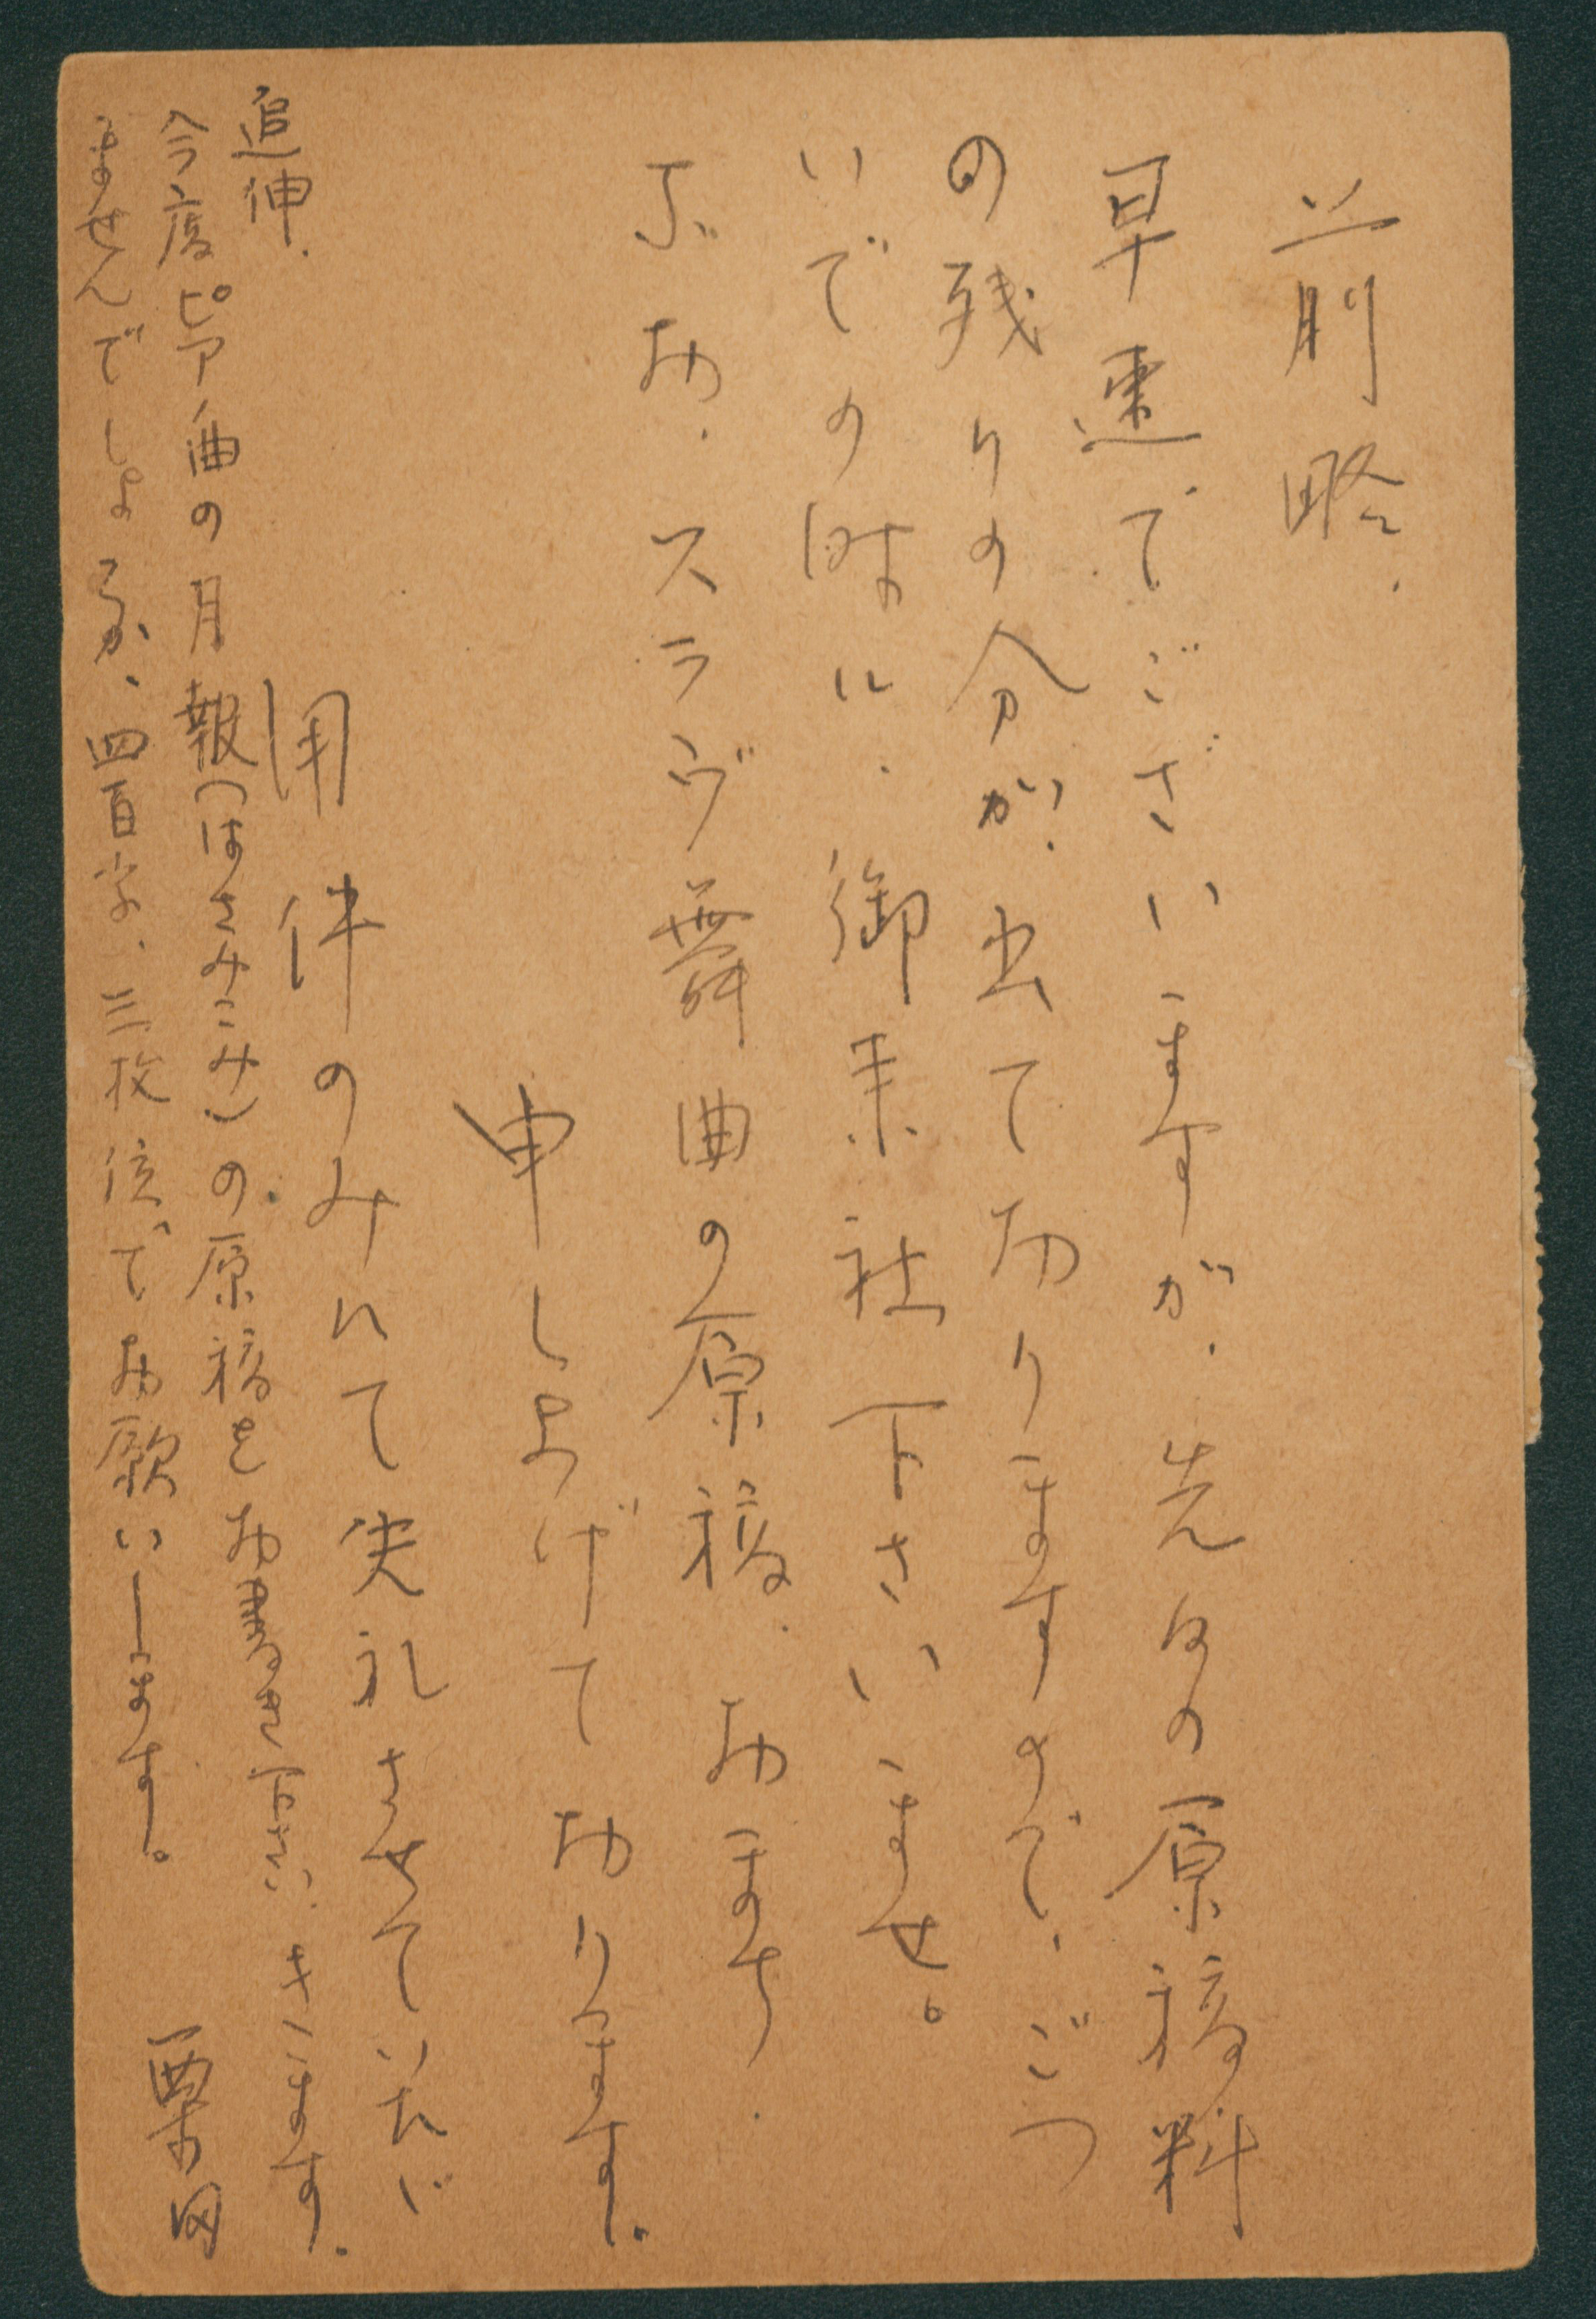 前略、
早速でございますが、先日の原稿料
の残りの分が、出ておりますので、ごつ
いでの時に、御来社下さいませ。
なお、スラヴ舞曲の原稿、おまち
申しあげております。
用件のみにて失礼させていただ
きます。
追伸、
今度ピアノ曲の月報(はさみこみ)の原稿をお書き下さい
ませんでしょうか、四百字、三枚位でお願いします。
栗田